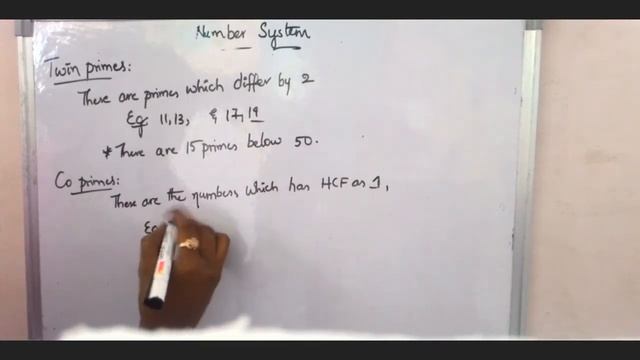 Number System
Twin primes:
These are primes which differ by 2
Eg 11,13, & 17,19
* There are 15 primes below 50.
Co primes:
These are the numbers which has HCF as 1,
Eg